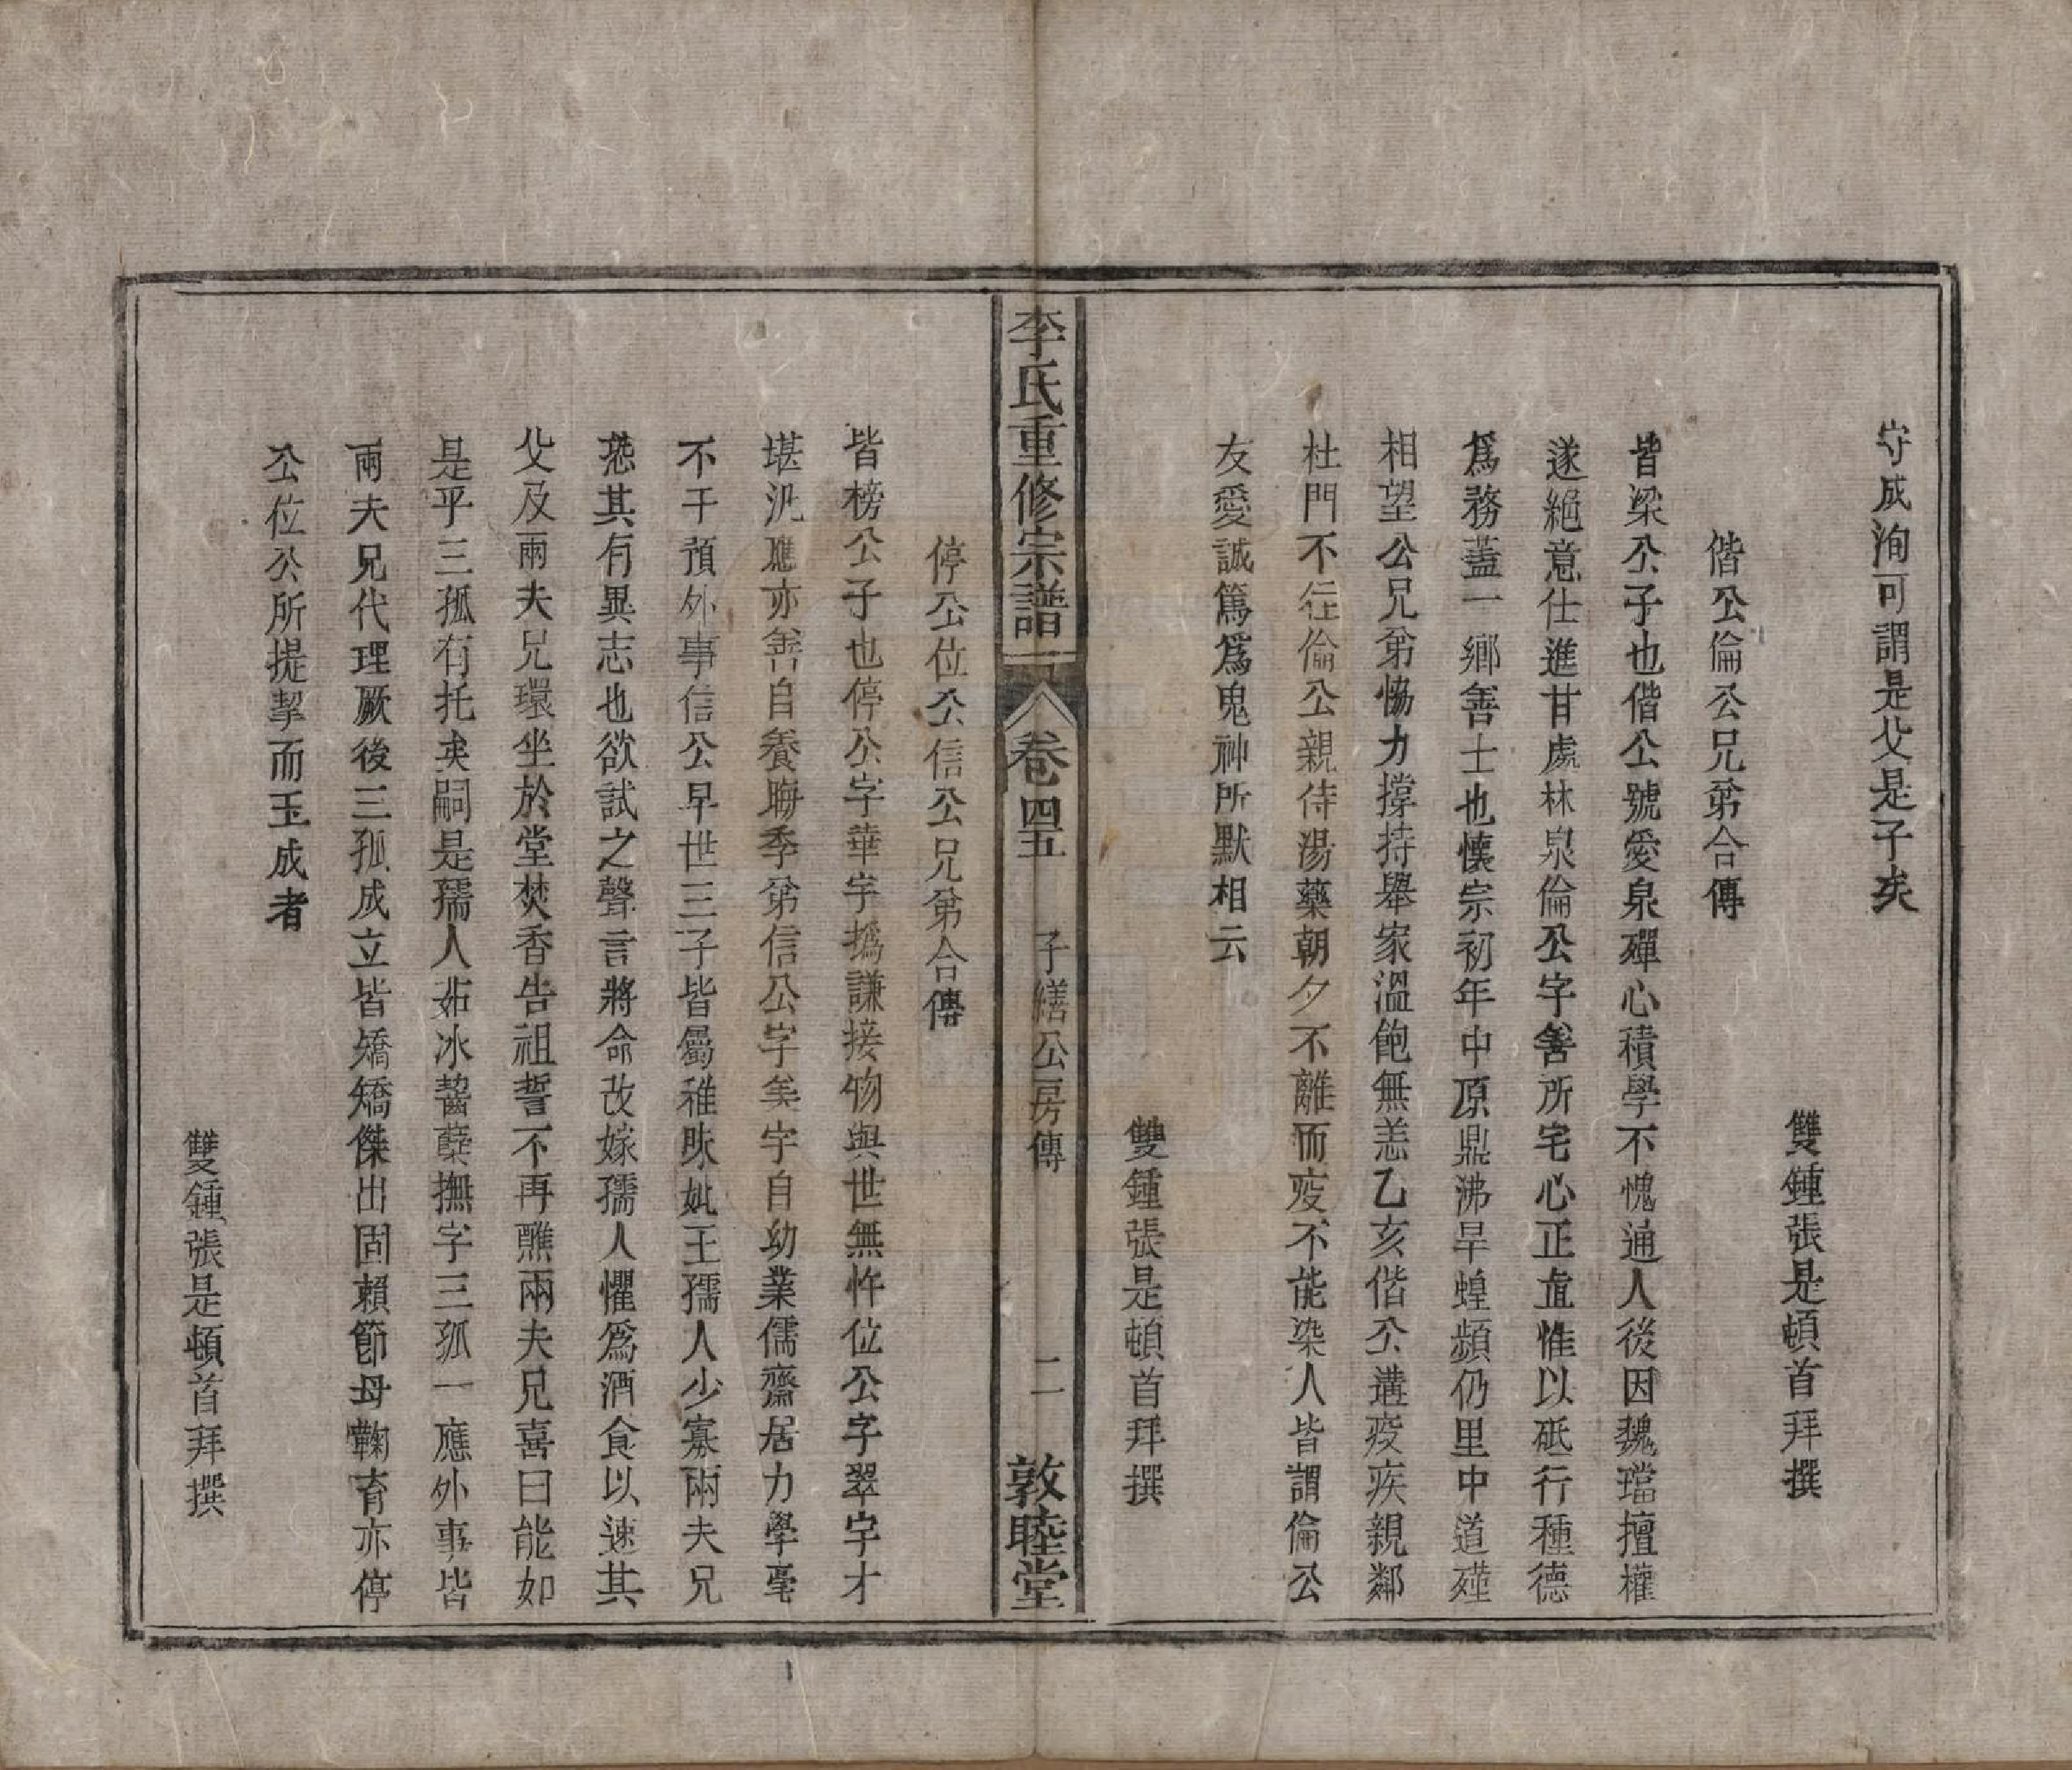 守成洵可謂是父是子矣
雙鍾張是頓首拜撰
偕公倫公兄弟合傳
皆梁公子也偕公號愛泉殫心積學不愧通人後因魏璫擅權
遂絕意仕進甘處林泉倫公字善所宅心正直惟以砥行種德
爲務蓋一鄉善士也懷宗初年中原鼎沸旱蝗頻仍里中道殣
相望公兄弟恊力撐持舉家溫飽無恙乙亥偕公遘疫疾親鄰
杜門不往倫公親侍湯藥朝夕不離而疫不能染人皆謂倫公
友愛誠篤爲鬼神所默相云
雙鍾張是頓首拜撰
李氏重修宗譜 卷四五 子繕公房傳 二 敦睦堂
停公位公信公兄弟合傳
皆榜公子也停公字華宇撝謙接物與世無忤位公字翠宇才
堪汎應亦善自養晦季弟信公字美宇自幼業儒齋居力學毫
不干預外事信公早世三子皆屬稚昧妣王孺人少寡兩夫兄
恐其有異志也欲試之聲言將命改嫁孺人懼爲酒食以速其
父及兩夫兄環坐於堂焚香告祖誓不再醮兩夫兄喜曰能如
是乎三孤有托矣嗣是孺人茹冰齧蘗撫字三孤一應外事皆
兩夫兄代理厥後三孤成立皆矯矯傑出固賴節母鞠育亦停
公位公所提挈而玉成者
雙鍾張是頓首拜撰